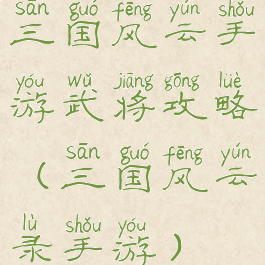 sān guó fēng yún shǒu
三国风云手
yóu wǔ jiāng gōng lüè
游武将攻略
sān guó fēng yún
（三国风云
lù shǒu yóu
录手游）